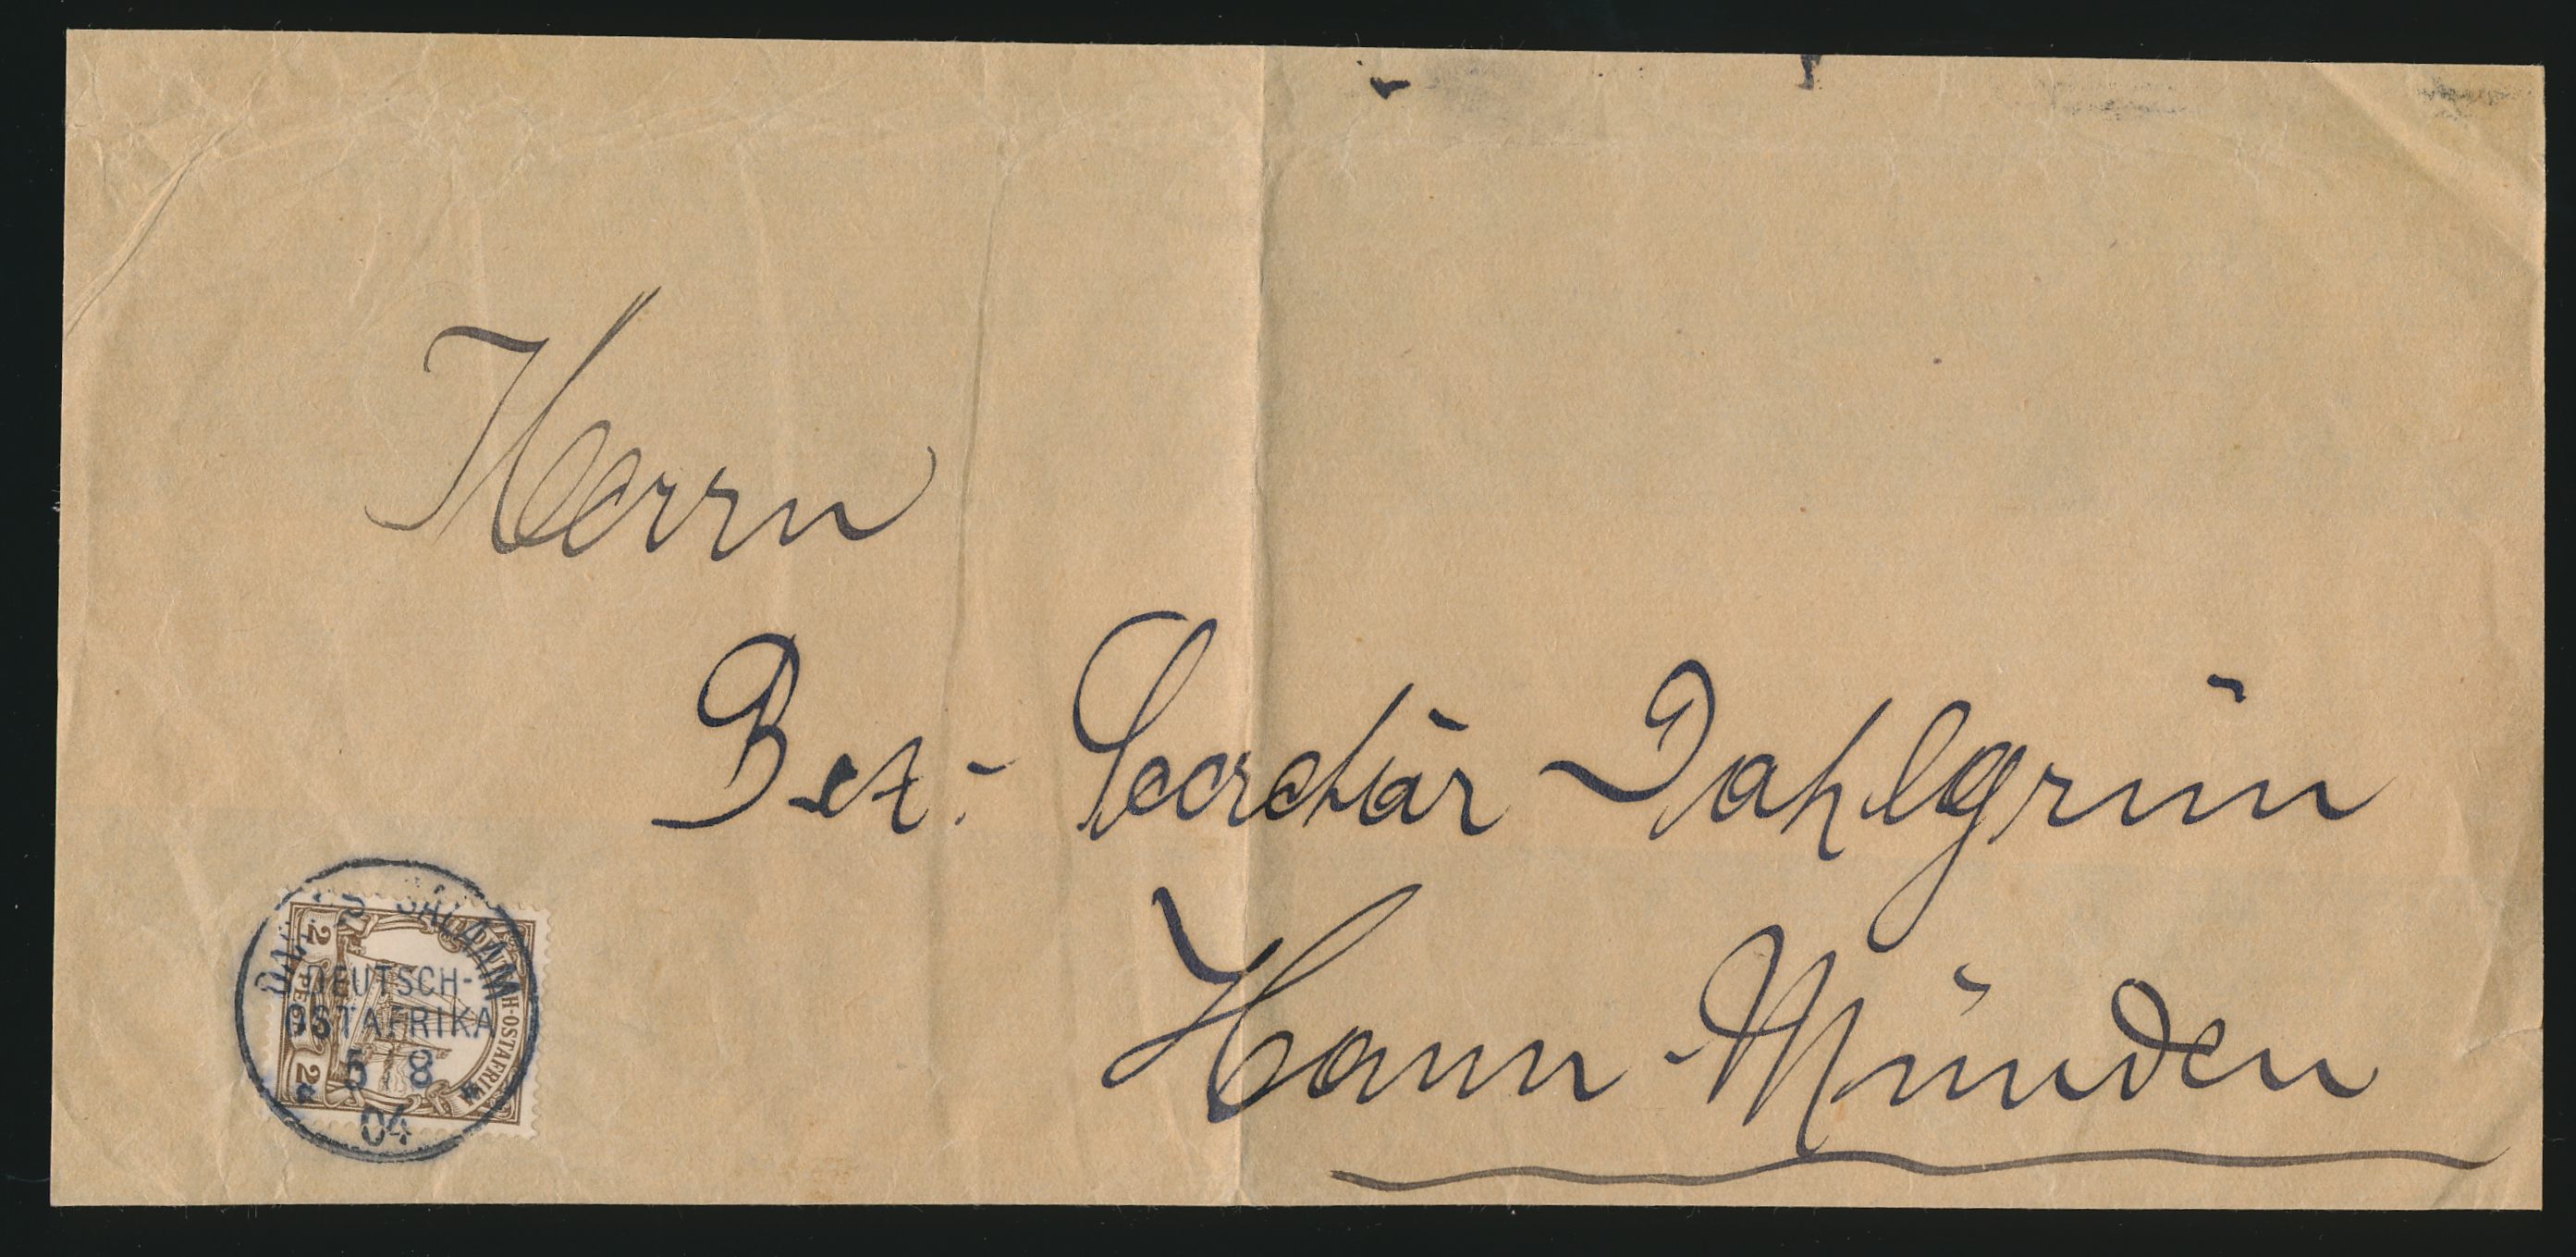 Herrn
Bez.- Secretär Dahlgrün
Hann-Münden
DAR-ES-SALAAM
DEUTSCH-
OSTAFRIKA
5 8
04
2
PESA
2
DEUTSCH-OSTAFRIKA